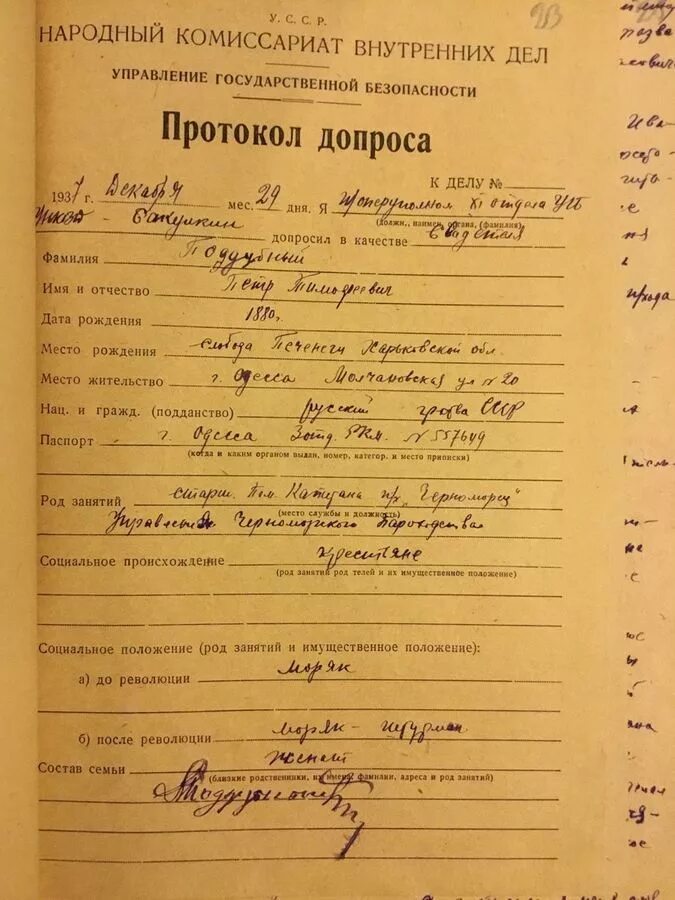 У. С. С. Р.
НАРОДНЫЙ КОМИССАРИАТ ВНУТРЕННИХ ДЕЛ
УПРАВЛЕНИЕ ГОСУДАРСТВЕННОЙ БЕЗОПАСНОСТИ
Протокол допроса
К ДЕЛУ №
1937 г. Декабря мес. 29 дня. Я Оперуполном XI отдела УГБ
(должн., наимен. органа, фамилия)
допросил в качестве Свидетеля
Фамилия Поддубный
Имя и отчество Петр Тимофеевич
Дата рождения 1880 г.
Место рождения слобода Печенеги Харьковской обл.
Место жительство г. Одесса Молчановская ул № 20
Нац. и гражд. (подданство) русский гр-тва СССР
Паспорт г. Одесса 3 отд. РКМ. № 557649
(когда и каким органом выдан, номер, категор. и место приписки)
Род занятий старш. Пом. Капитана п/х „Черноморец"
(место службы и должность)
Управление Черноморского Пароходства
Социальное происхождение крестьяне
(род занятий род телей и их имущественное положение)
Социальное положение (род занятий и имущественное положение):
а) до революции моряк
б) после революции моряк - штурман
Состав семьи женат
(близкие родственники, их имена, фамилии, адреса и род занятий)